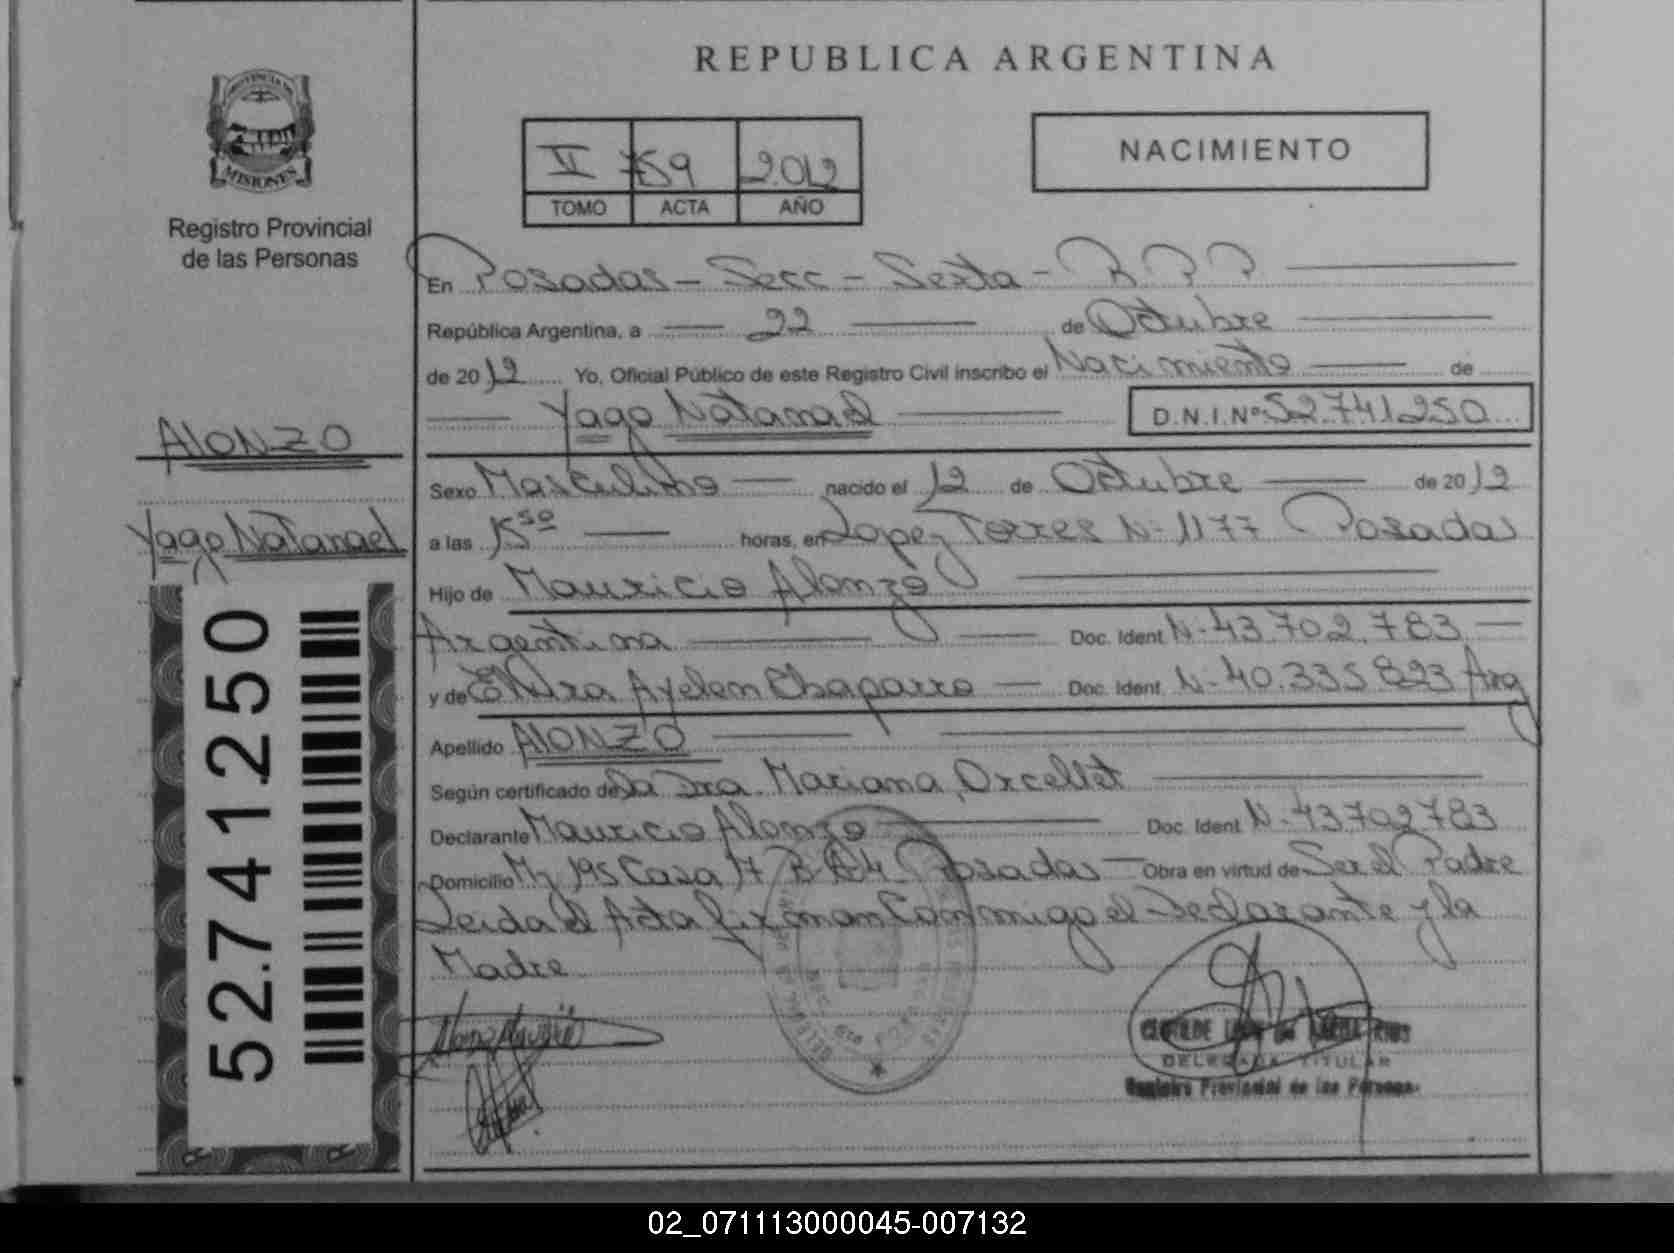 REPUBLICA ARGENTINA
PROVINCIA DE
MISIONES
Registro Provincial
de las Personas
VI 759 2.012
TOMO ACTA AÑO
NACIMIENTO
En Posadas - Secc - Sexta - R.P.P
República Argentina, a 22 de Octubre
de 2012 Yo, Oficial Público de este Registro Civil inscribo el Nacimiento de
Yago Natanael D.N.I.Nº 52.741.250
ALONZO
Yago Natanael
Sexo Masculino nacido el 12 de Octubre de 2012
a las 15 50 horas, en Lopez Torres Nº 1177 Posadas
Hijo de Mauricio Alonzo
Argentina Doc. Ident. N-43.702.783
y de Ayelen Chaparro Doc. Ident. N-40.335.893 Arg
Apellido ALONZO
Según certificado de la Dra. Mariana Orcellet
Declarante Mauricio Alonzo Doc. Ident. N-43702783
Domicilio Mz 195 Casa 17 Posadas Obra en virtud de Ser el Padre
Leida el Acta firman Conmigo el Declarante y la
Madre
DELEGADA TITULAR
Registro Provincial de las Personas
52.741.250
02_071113000045-007132